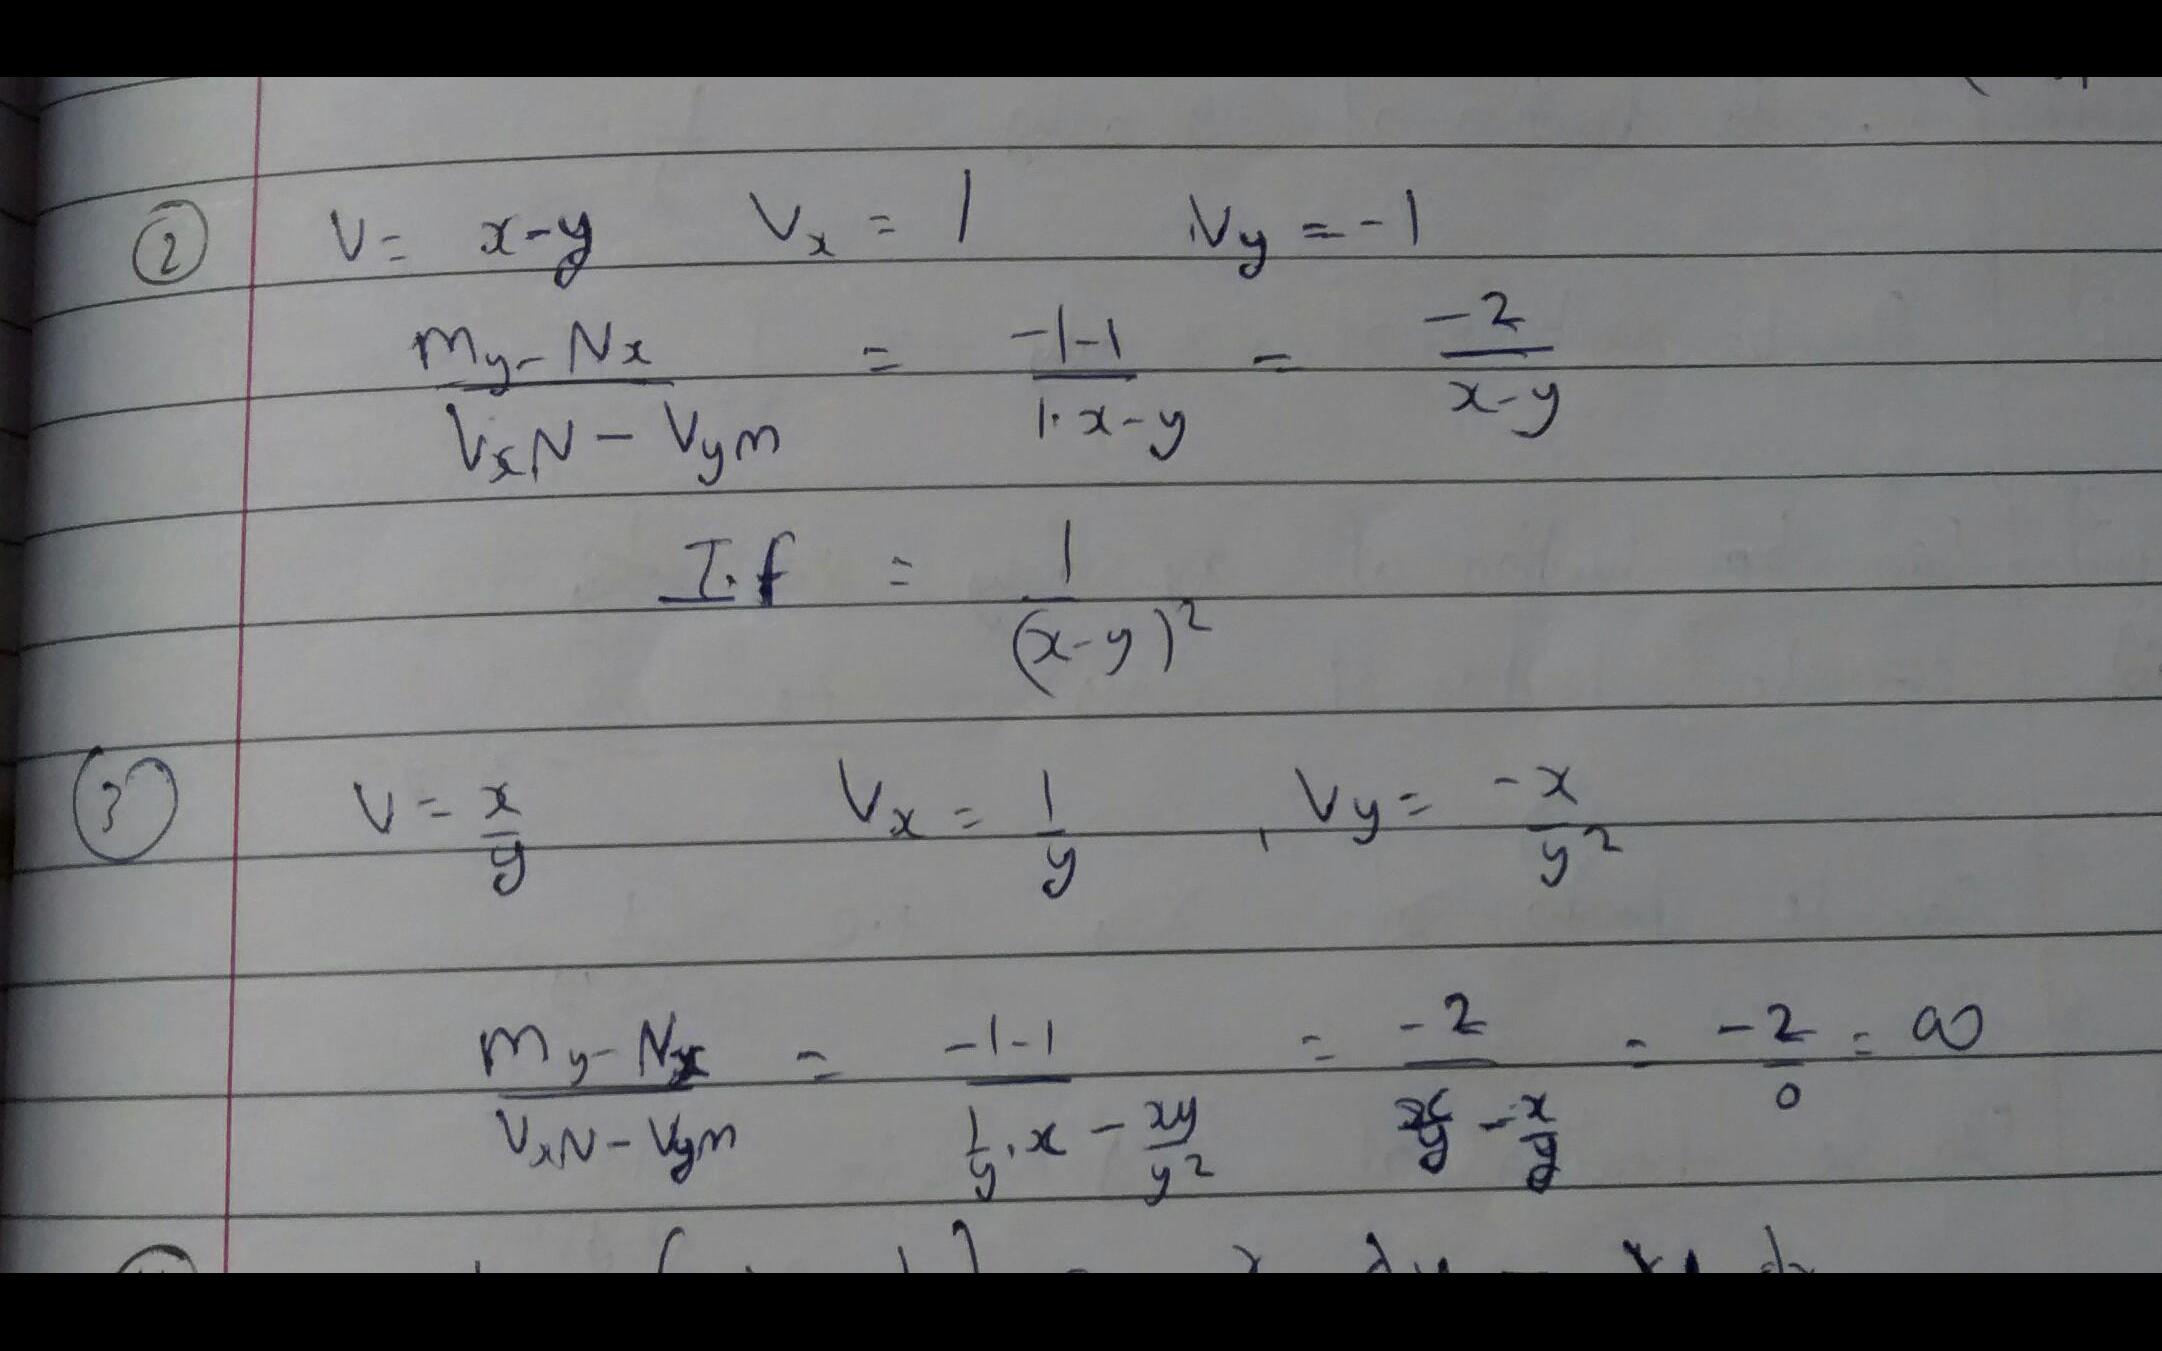 ② V = x-y Vx = 1 Vy = -1
My - Nx / VxN - Vym = -1-1 / 1·x-y = -2 / x-y
I.f = 1 / (x-y)²
③ V = x/y Vx = 1/y , Vy = -x/y²
My - Nx / VxN - Vym = -1-1 / 1/y · x - xy/y² = -2 / x/y - x/y = -2/0 = ∞